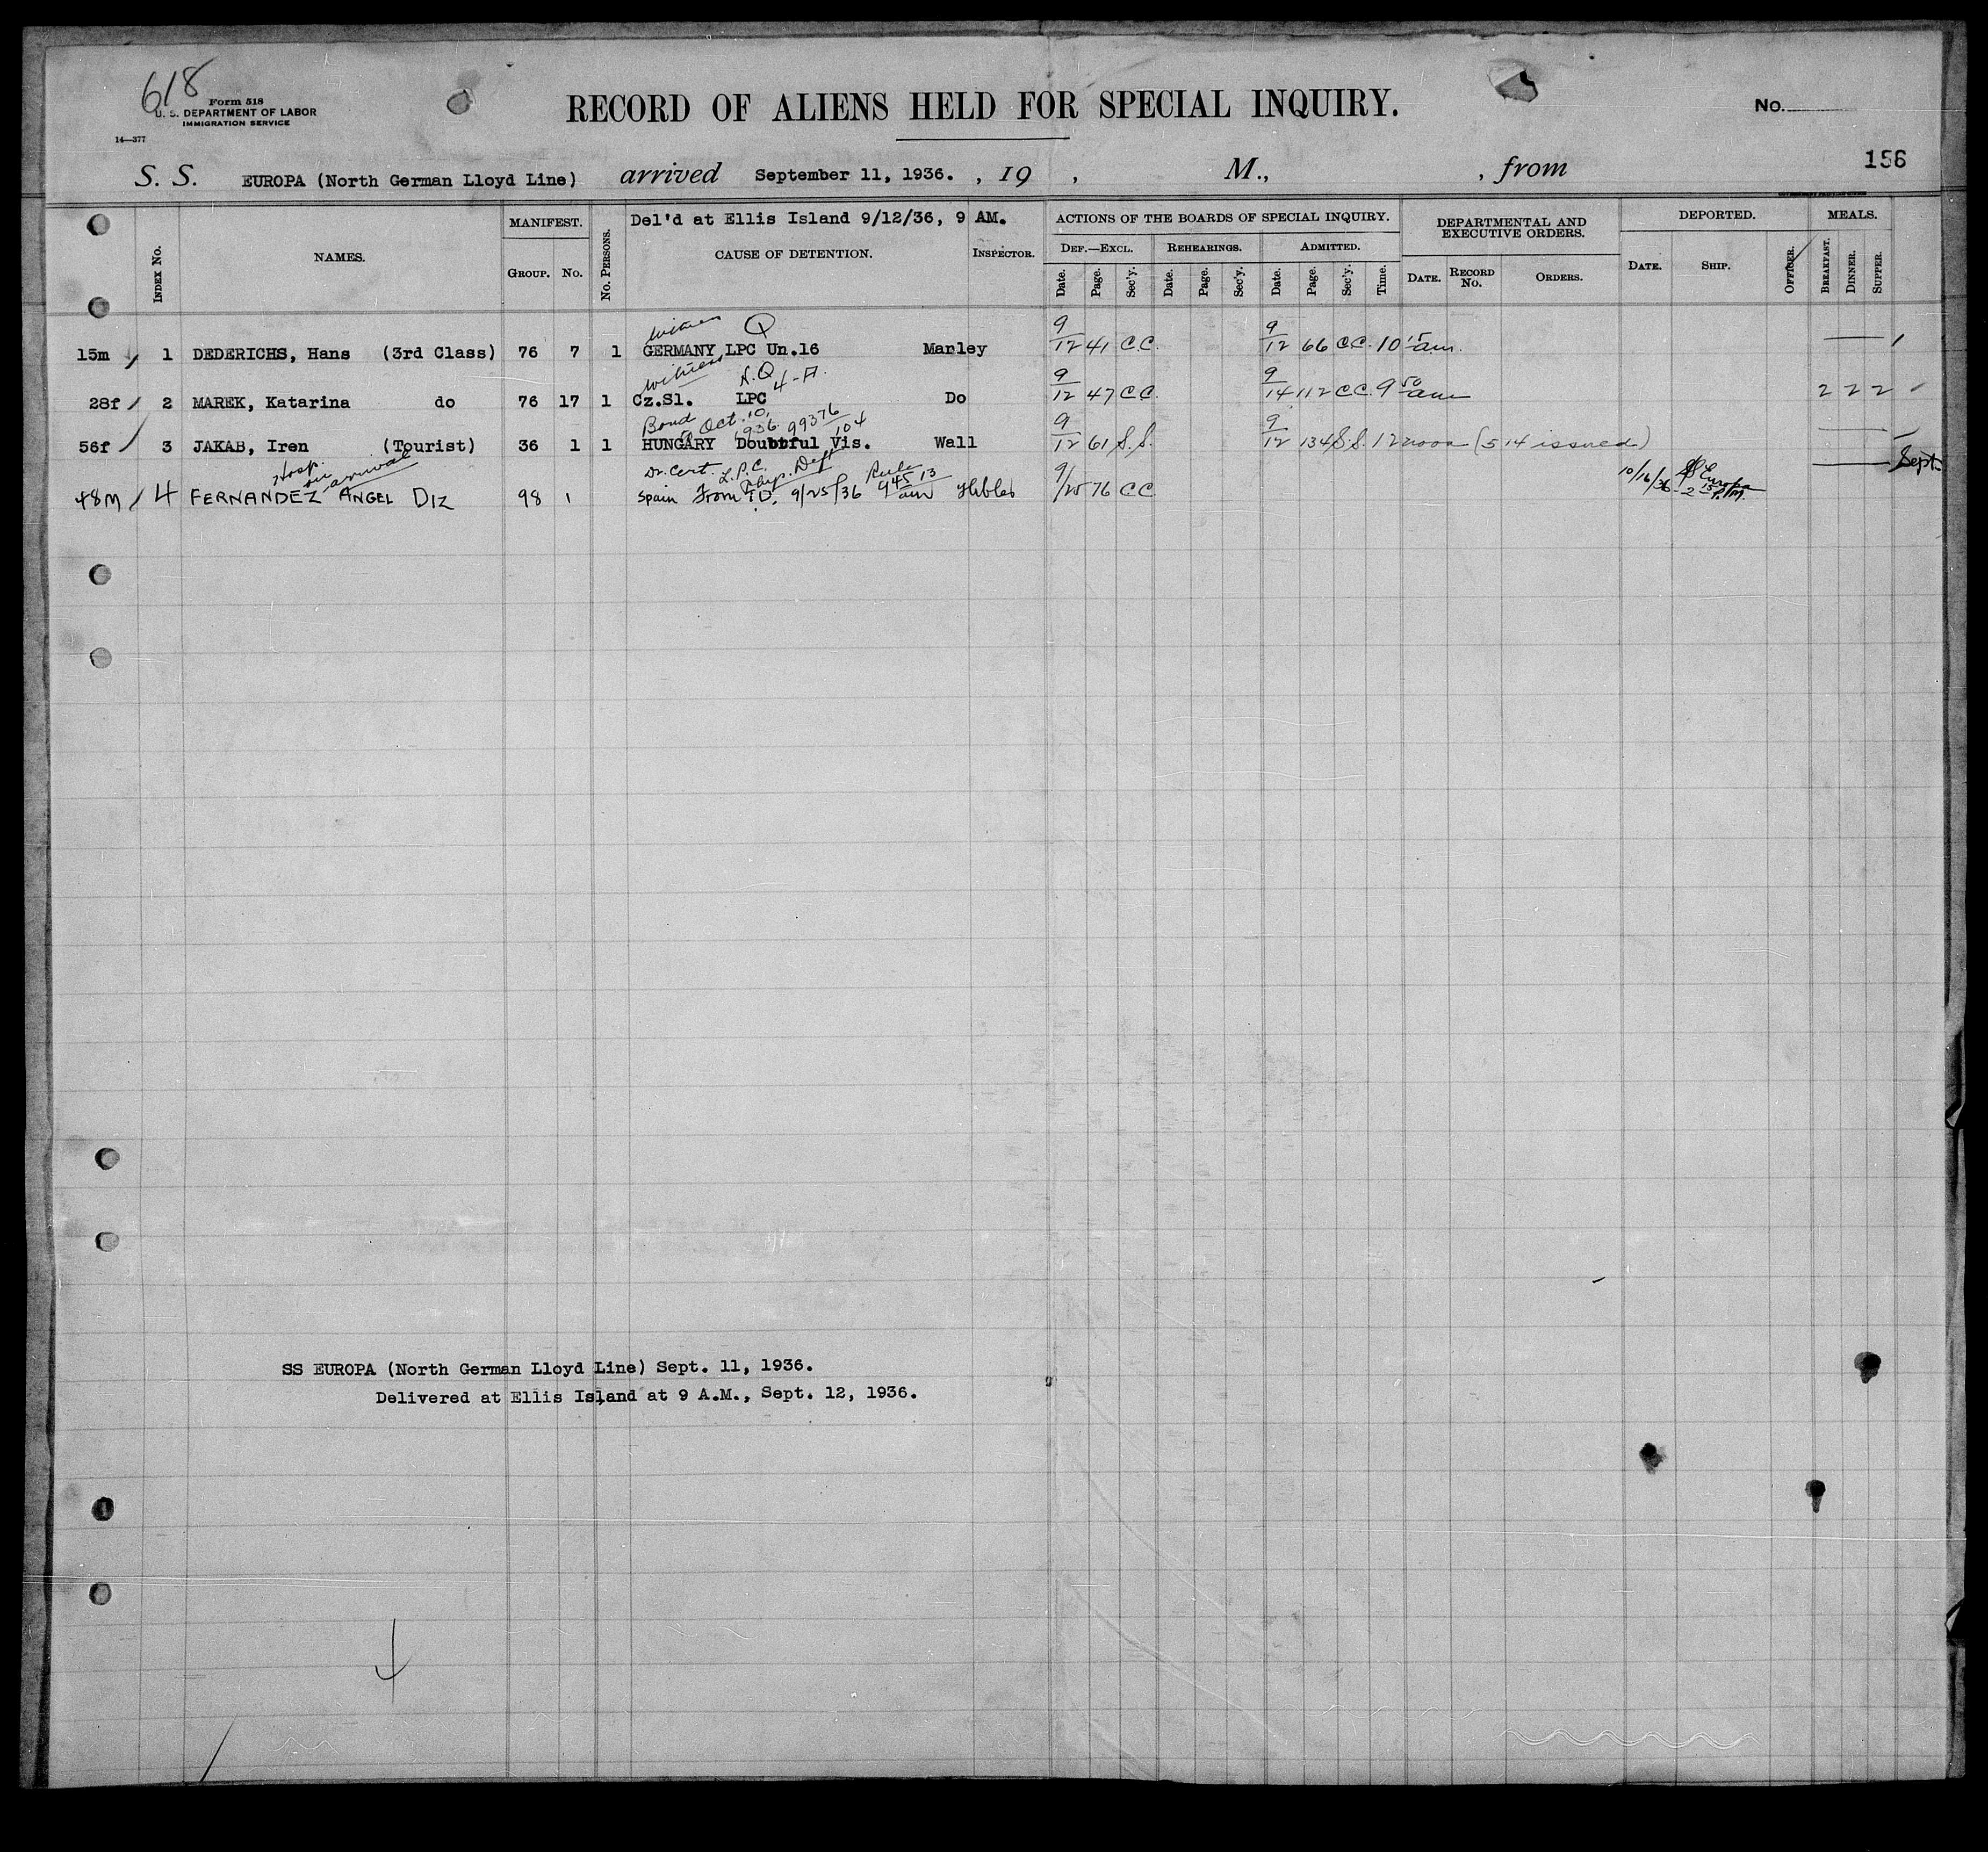 618
Form 518
U. S. DEPARTMENT OF LABOR
IMMIGRATION SERVICE
14—377
RECORD OF ALIENS HELD FOR SPECIAL INQUIRY.
No.
156
S. S. EUROPA (North German Lloyd Line) arrived September 11, 1936. , 19 , M., , from
INDEX No. NAMES. MANIFEST. GROUP. No. No. PERSONS. Del'd at Ellis Island 9/12/36, 9 AM. CAUSE OF DETENTION. INSPECTOR. ACTIONS OF THE BOARDS OF SPECIAL INQUIRY. DEF.—EXCL. Date. Page. Sec'y. REHEARINGS. Date. Page. Sec'y. ADMITTED. Date. Page. Sec'y. Time. DEPARTMENTAL AND EXECUTIVE ORDERS. DATE. RECORD No. ORDERS. DEPORTED. DATE. SHIP. OFFICER. MEALS. BREAKFAST. DINNER. SUPPER.
Witness Q
15m 1 DEDERICHS, Hans (3rd Class) 76 7 1 GERMANY LPC Un.16 Manley 9/12 41 C.C. 9/12 66 C.C. 10 15 am.
Witness A.Q 4-A.
28f 2 MAREK, Katarina do 76 17 1 Cz.Sl. LPC Do 9/12 47 C.C. 9/14 112 C.C. 9 50 am 2 2 2
Bond Oct. 10, 1936. 99376/104
56f 3 JAKAB, Iren (Tourist) 36 1 1 HUNGARY Doubtful Vis. Wall 9/12 61 S.S. 9/12 134 S.S. 12 noon (514 issued)
Hosp. on arrival Dr. Cert. L.P.C. Phys. Def Rule 13
48M 4 FERNANDEZ ANGEL DIZ 98 1 Spain From T.D. 9/25/36 9 45 am 9/25 76 C.C. 10/16/36 SS Europa 2 15 P.M. Sept.
SS EUROPA (North German Lloyd Line) Sept. 11, 1936.
Delivered at Ellis Island at 9 A.M., Sept. 12, 1936.